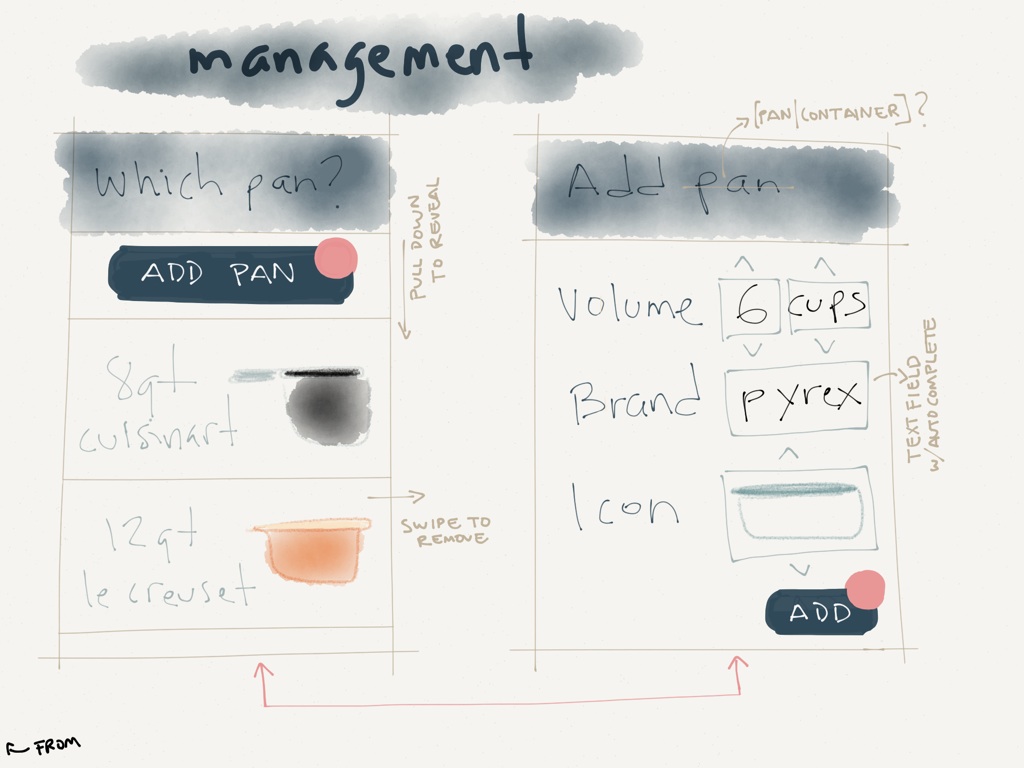 management
Which pan?
ADD PAN
PULL DOWN
TO REVEAL
8qt
cuisinart
12qt
le creuset
SWIPE TO
REMOVE
[PAN|CONTAINER]?
Add pan
Volume 6 cups
Brand pyrex
TEXT FIELD
w/AUTO COMPLETE
Icon
ADD
FROM